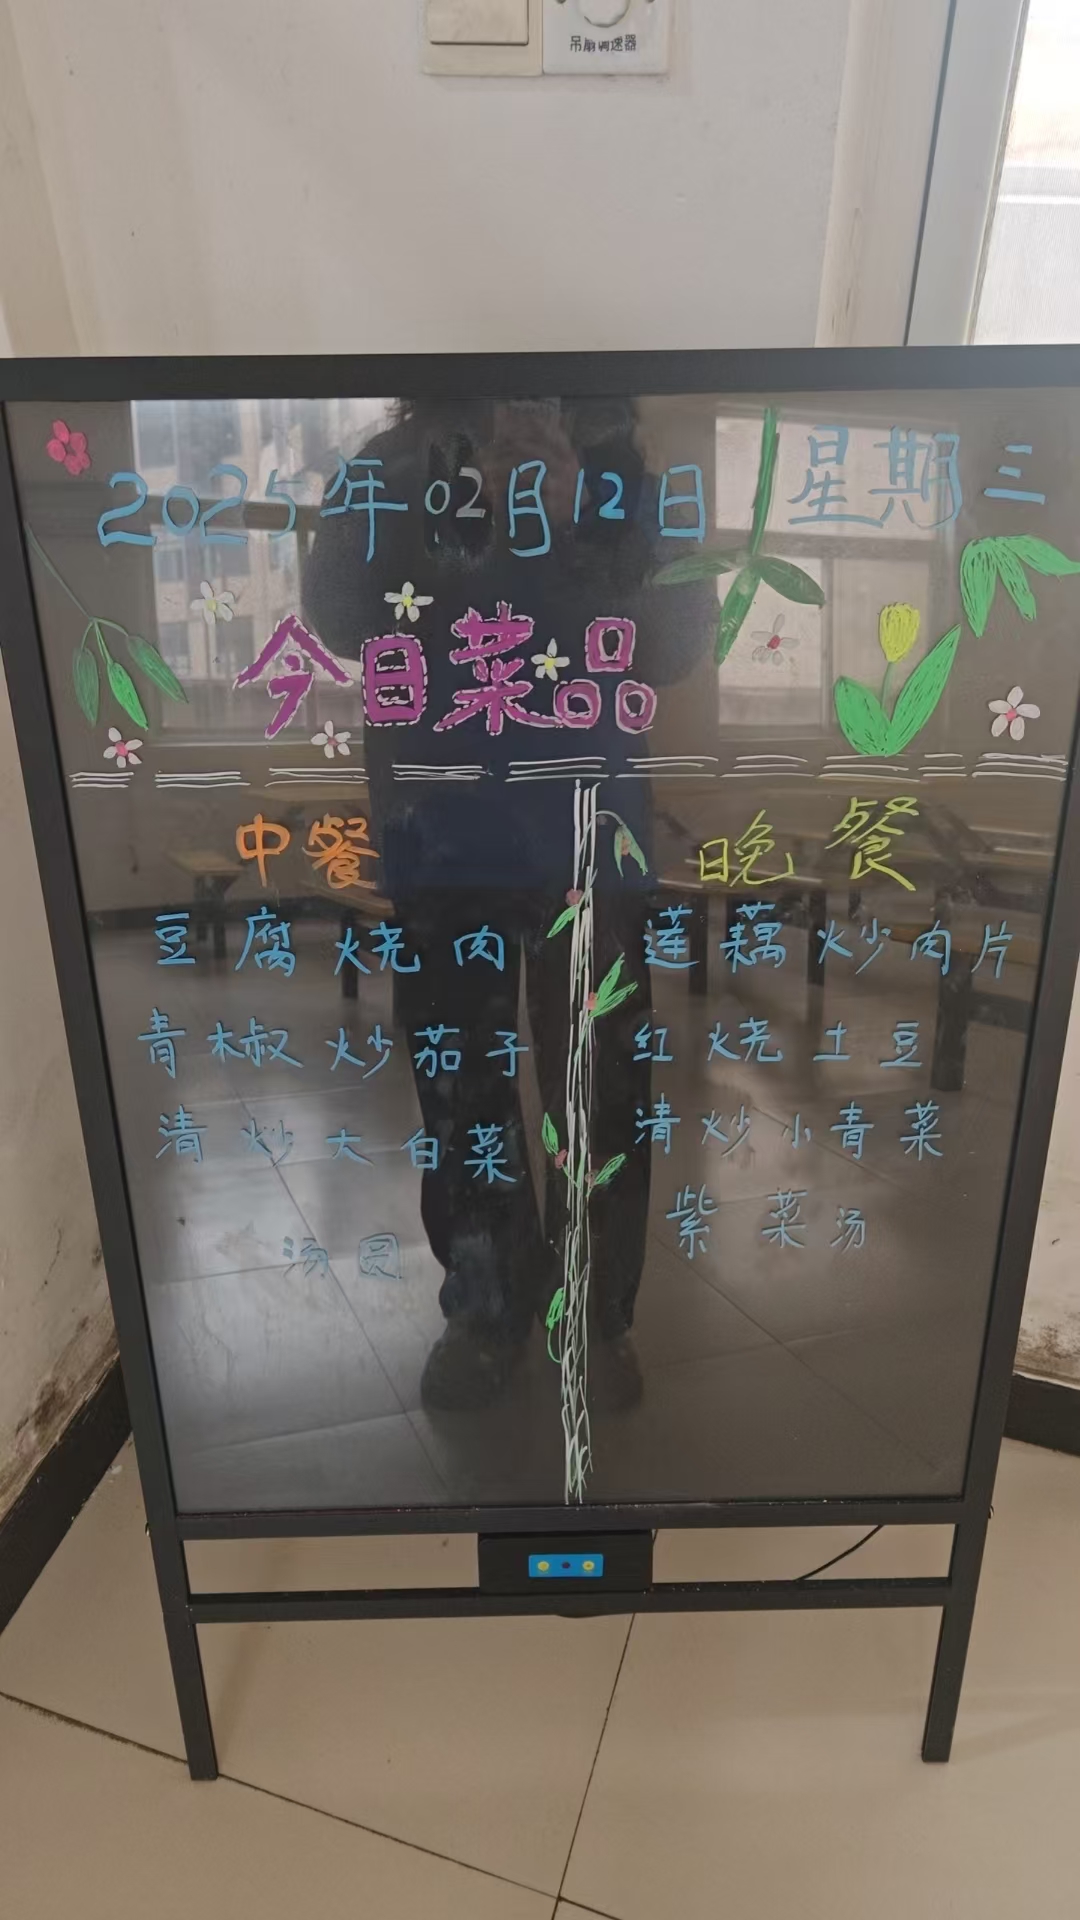 吊扇调速器
2025年02月12日 星期三
今日菜品
中餐
豆腐烧肉
青椒炒茄子
清炒大白菜
汤圆
晚餐
莲藕炒肉片
红烧土豆
清炒小青菜
紫菜汤